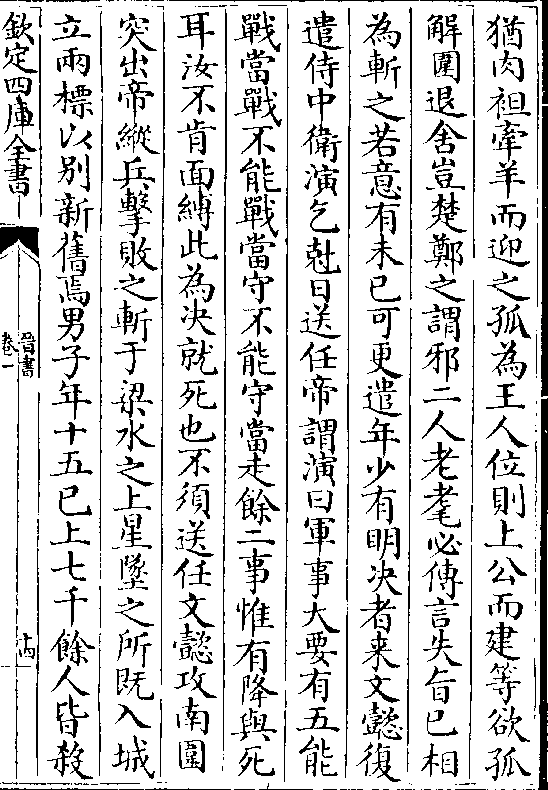 猶肉袒牽羊而迎之孤為王人位則上公而建等欲孤
解圍退舍豈楚鄭之謂邪二人老耄必傳言失旨已相
為斬之若意有未已可更遣年少有明决者来文懿復
遣侍中衛演乞尅日送任帝謂演曰軍事大要有五能
戰當戰不能戰當守不能守當走餘二事惟有降與死
耳汝不肯面縛此為决就死也不須送任文懿攻南圍
突出帝縱兵擊敗之斬于梁水之上星墜之所既入城
立兩標以别新舊焉男子年十五已上七千餘人皆殺
欽定四庫全書
晉書
卷一
十四